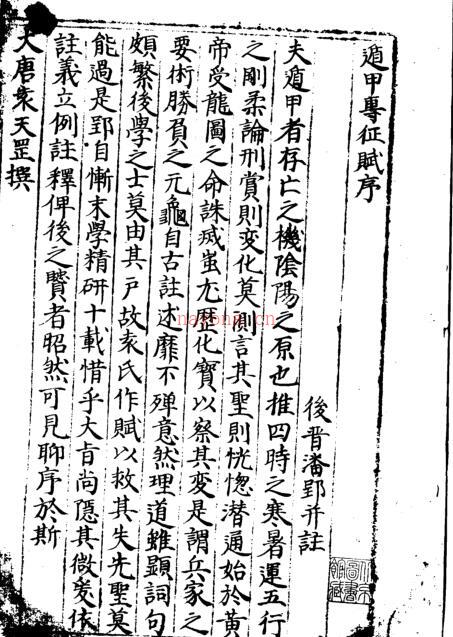 遁甲專征賦序
後晋潘郢并註
夫遁甲者存亡之機陰陽之原也推四時之寒暑運五行
之剛柔論刑賞則変化莫測言其聖則恍惚潜通始於黃
帝受龍圖之命誅滅蚩尤歷化寶以察其変是謂兵家之
要術勝負之元龜自古註述靡不殫意然理道雖顯詞句
頗繁後學之士莫由其戸故袁氏作賦以救其失先聖莫
能過是郢自慚末學精研十載惜乎大旨尚隱其微爰依
註義立例註釋俾後之賢者昭然可見聊序於斯
大唐袁天罡撰
nayona.cn